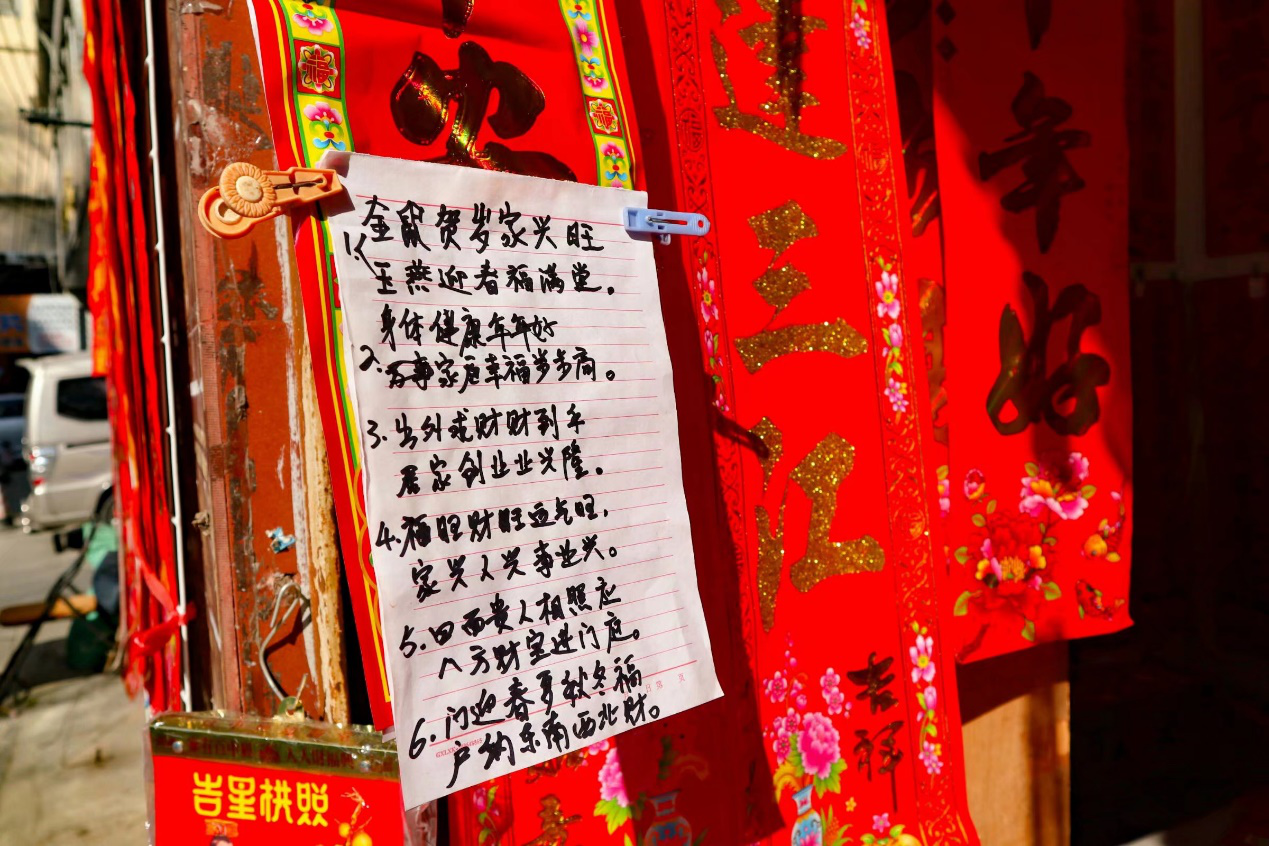 1. 金鼠贺岁家兴旺
玉燕迎春福满堂。
身体健康年年好
2. 万事家庭幸福步步高。
3. 出外求财财到手
居家创业业兴隆。
4. 福旺财旺运气旺,
家兴人兴事业兴。
5. 四面贵人相照应
八方财宝进门庭。
6. 门迎春夏秋冬福
户纳东南西北财。
第 页
达三江
年幸好
吉祥
吉星拱照